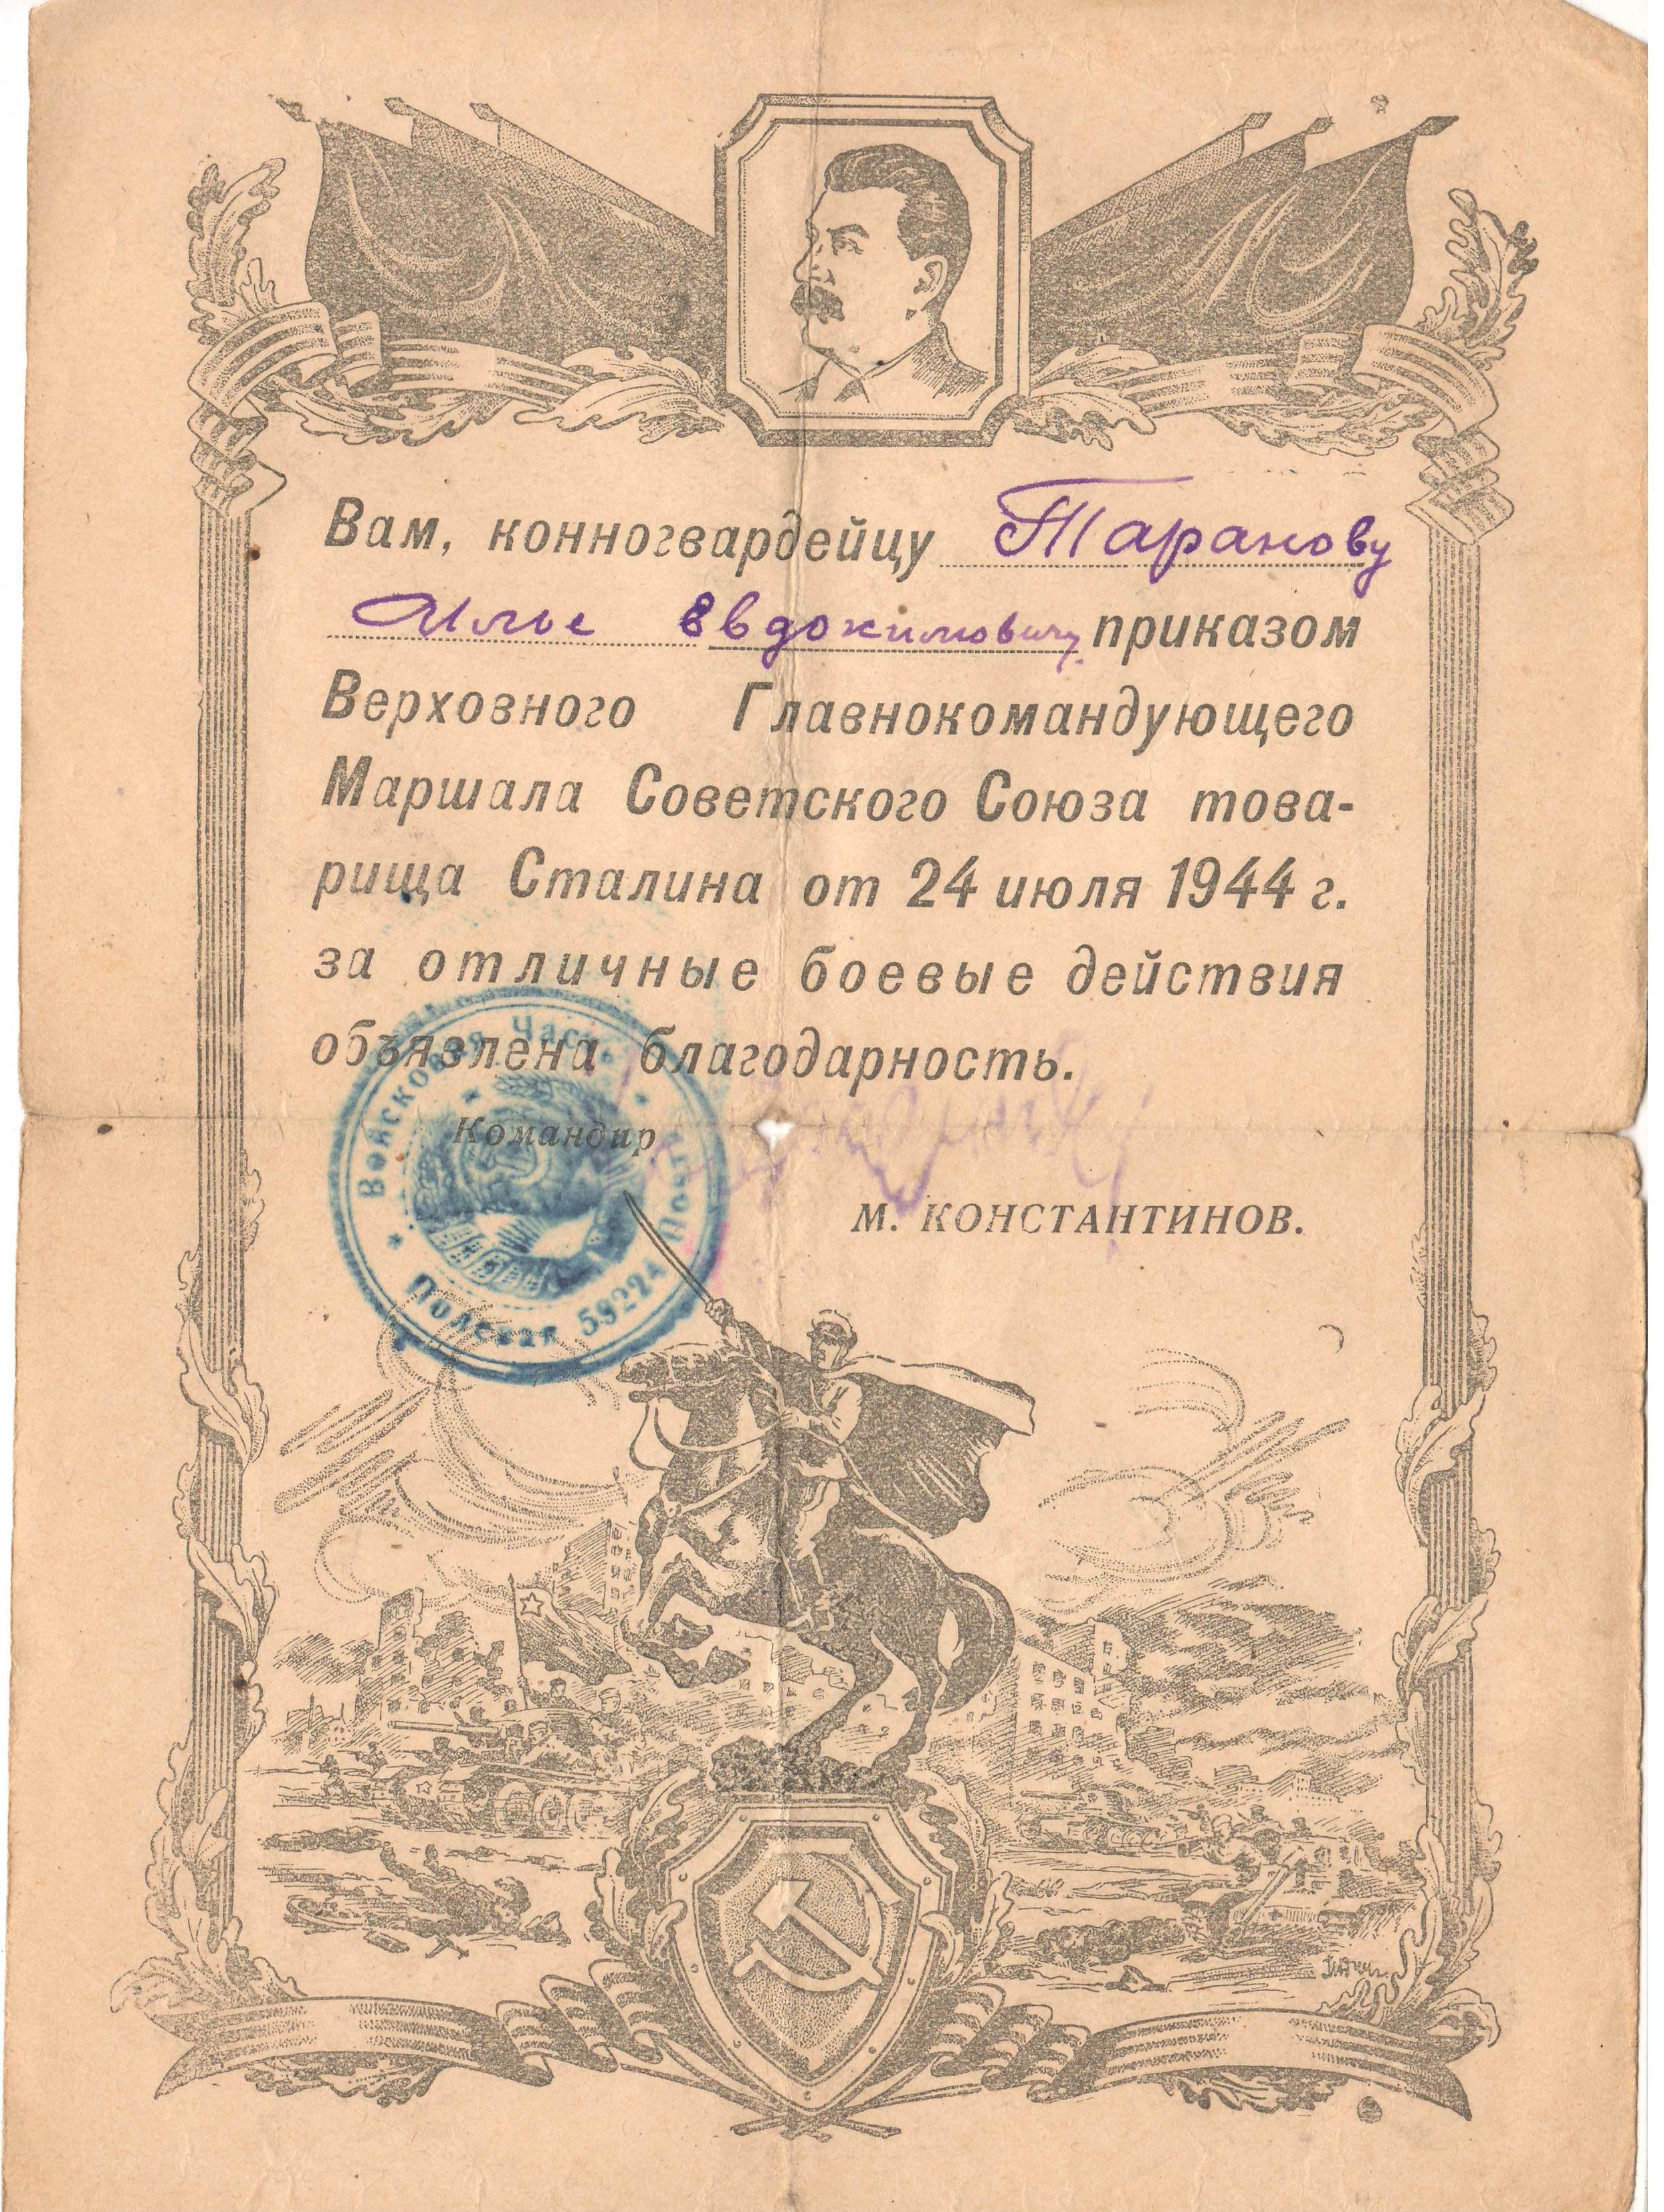 Вам, конногвардейцу Таранову
Илье Евдокимовичу приказом
Верховного Главнокомандующего
Маршала Советского Союза това-
рища Сталина от 24 июля 1944 г.
за отличные боевые действия
объявлена благодарность.
Командир
М. КОНСТАНТИНОВ.
Войсковая Часть
Полевая Почта 59224